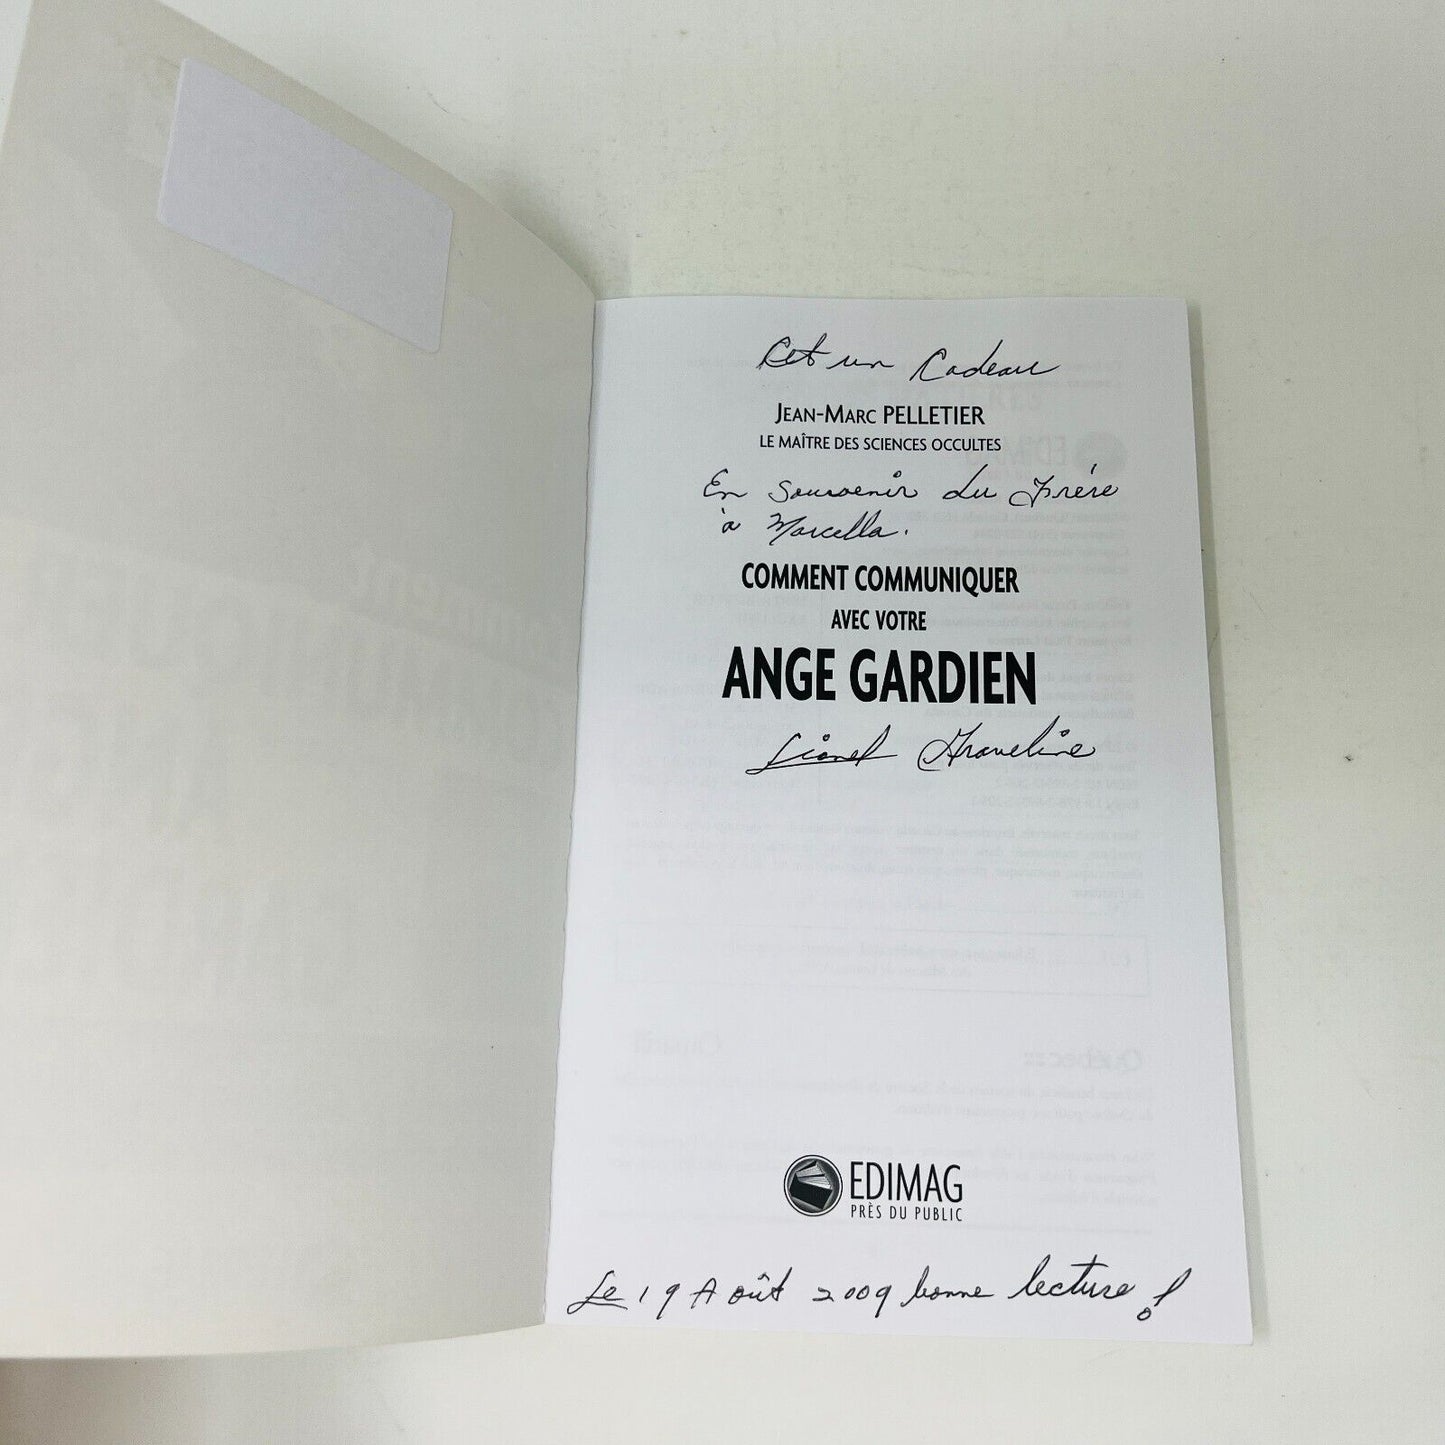 Cet un Cadeau
JEAN-MARC PELLETIER
LE MAÎTRE DES SCIENCES OCCULTES
En souvenir du Frére
à Marcella.
COMMENT COMMUNIQUER
AVEC VOTRE
ANGE GARDIEN
Lionel Graveline
EDIMAG
PRÈS DU PUBLIC
Le 19 Août 2009 bonne lecture !